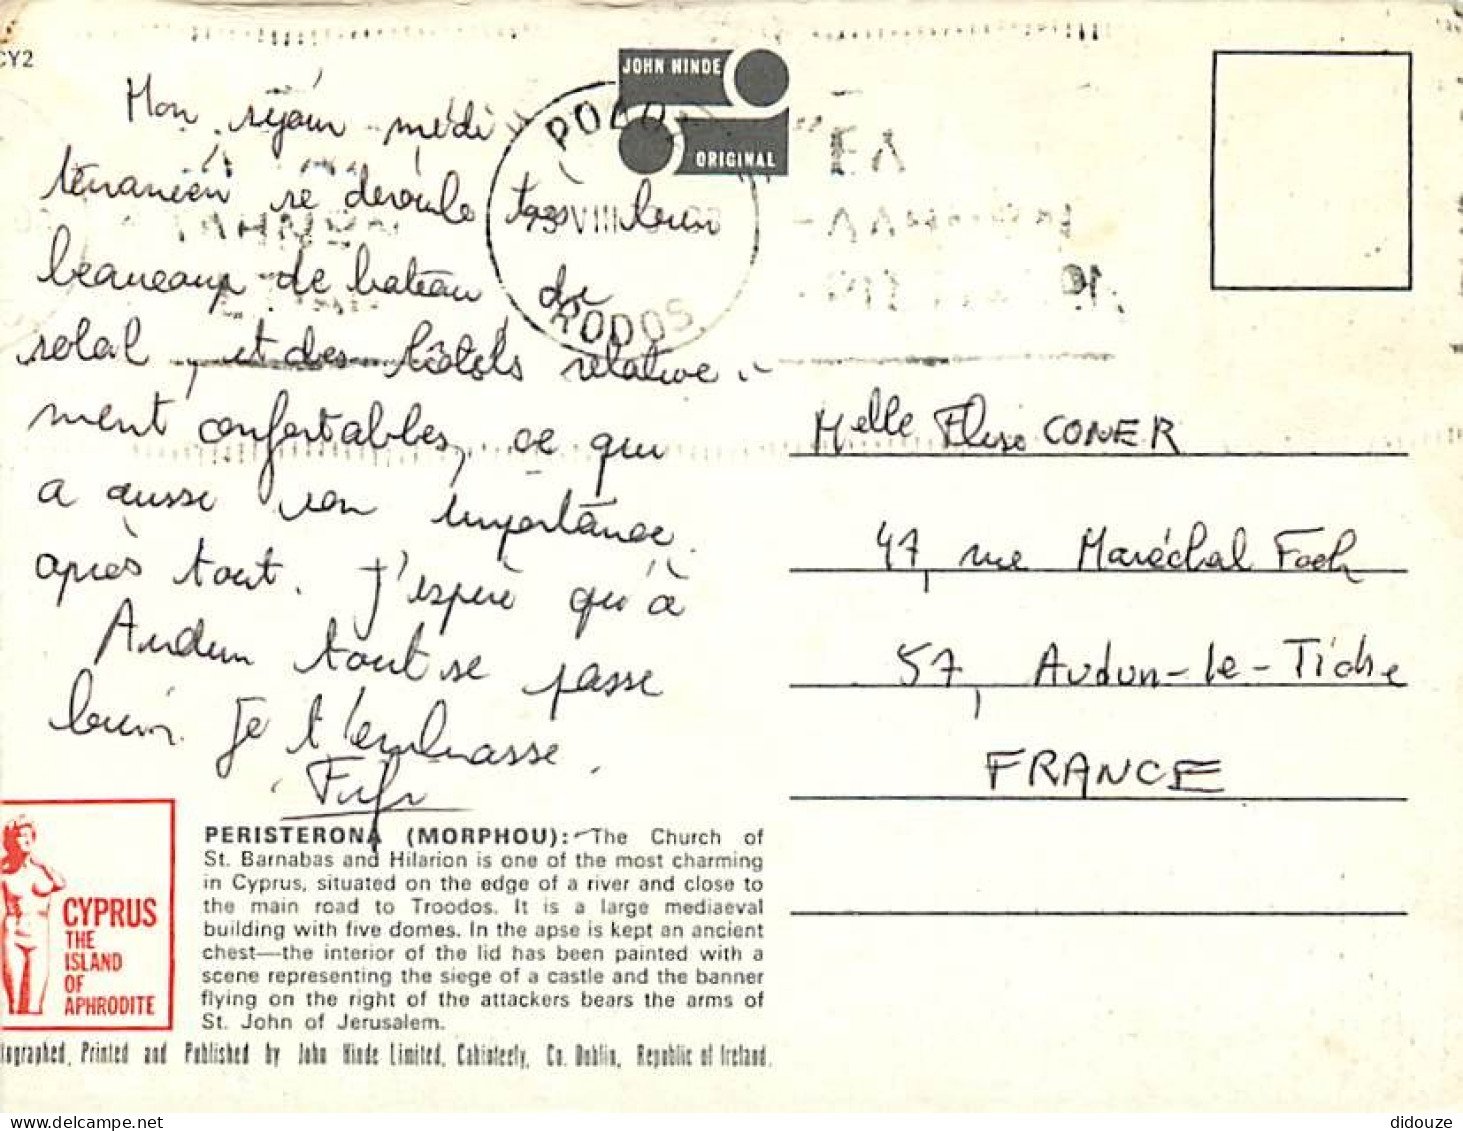 CY2
JOHN HINDE
ORIGINAL
RODOS
Mon séjour médi
terranéen se déroule très bien
beaucoup de bateau de
soleil, et des hôtels relative-
ment confortables, ce qui
a aussi son importance
après tout. J'espère qu'à
Audun tout se passe
bien. Je t'embrasse.
Melle Elise CONER
47, rue Maréchal Foch
57, Audun-le-Tiche
FRANCE
PERISTERONA (MORPHOU): The Church of
St. Barnabas and Hilarion is one of the most charming
in Cyprus, situated on the edge of a river and close to
the main road to Troodos. It is a large mediaeval
building with five domes. In the apse is kept an ancient
chest—the interior of the lid has been painted with a
scene representing the siege of a castle and the banner
flying on the right of the attackers bears the arms of
St. John of Jerusalem.
CYPRUS
THE
ISLAND
OF
APHRODITE
tographed, Printed and Published by John Hinde Limited, Cabinteely, Co. Dublin, Republic of Ireland.
didouze